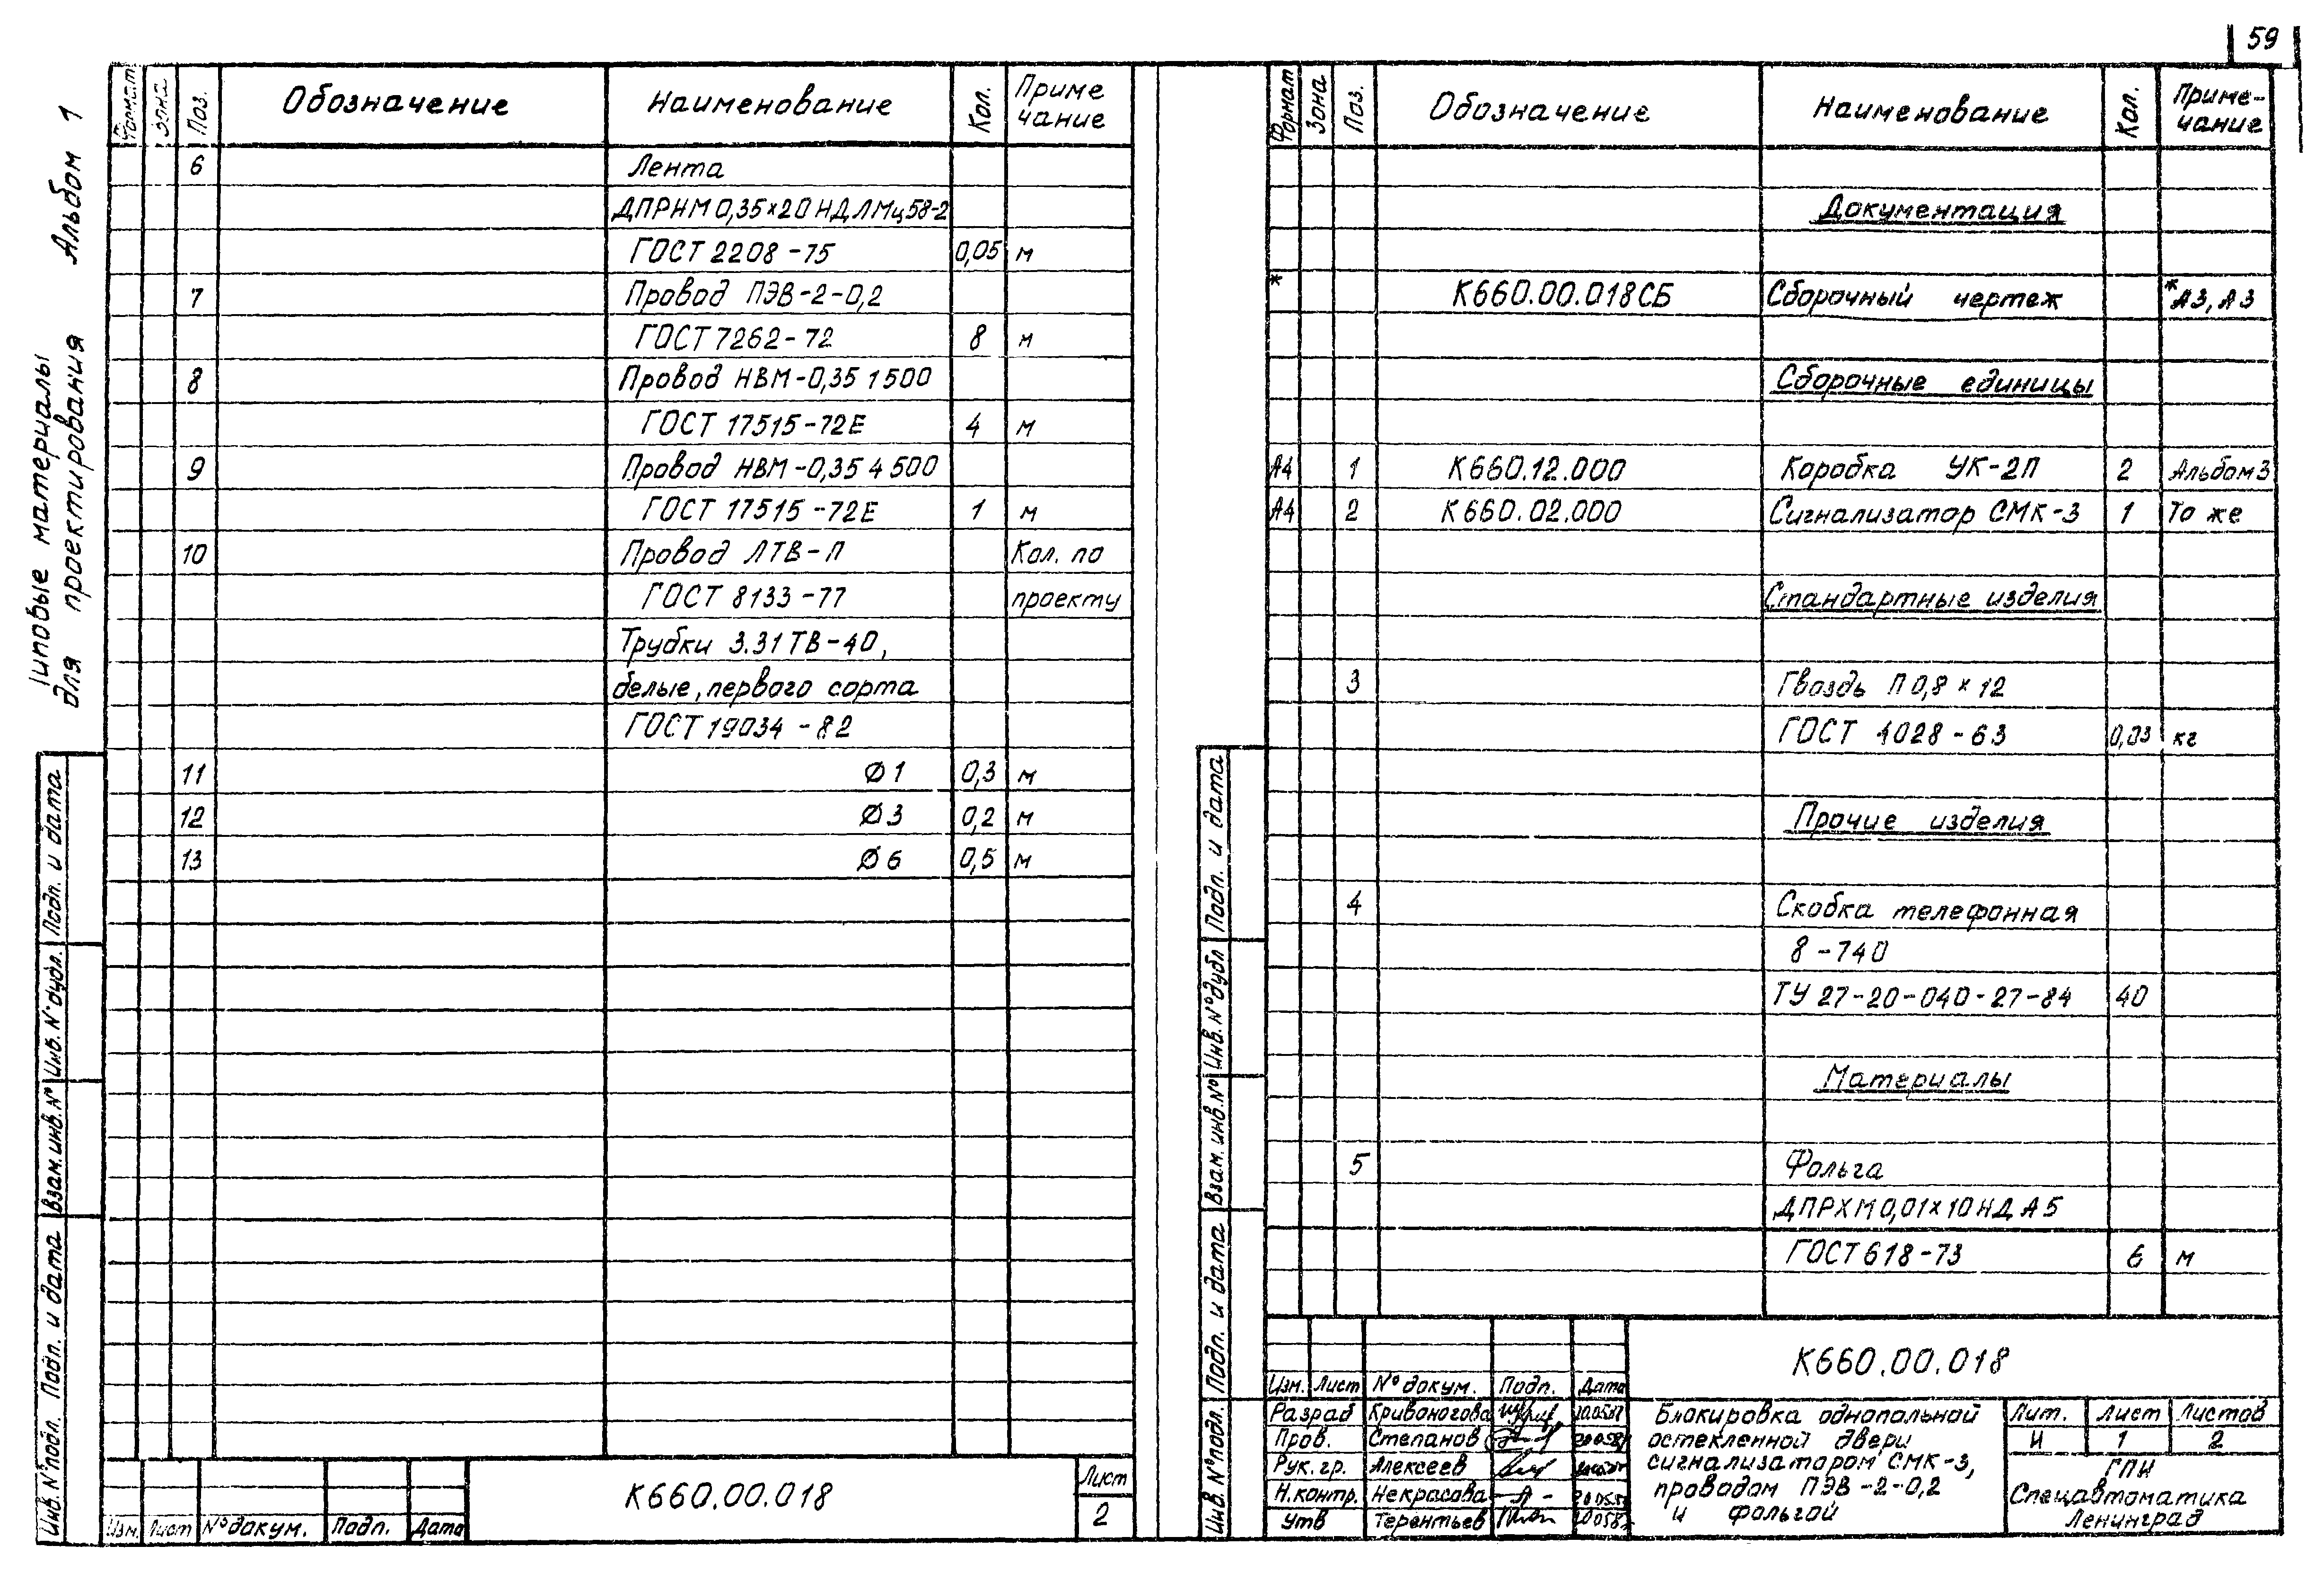 59
Типовые материалы
для проектирования Альбом 1
Формат Зона Поз. Обозначение Наименование Кол. Приме
чание
6 Лента
ДПРНМ 0,35×20 НД ЛМц 58-2
ГОСТ 2208-75 0,05 м
7 Провод ПЭВ-2-0,2
ГОСТ 7262-72 8 м
8 Провод НВМ-0,35 1 500
ГОСТ 17515-72Е 4 м
9 Провод НВМ-0,35 4 500
ГОСТ 17515-72Е 1 м
10 Провод ЛТВ-П Кол. по
ГОСТ 8133-77 проекту
Трубки 3.31 ТВ-40,
белые, первого сорта
ГОСТ 19034-82
11 Ø1 0,3 м
12 Ø3 0,2 м
13 Ø6 0,5 м
Подп. и дата
Инв. № дубл.
Взам. инв. №
Подп. и дата
Инв. № подл.
Изм. Лист № докум. Подп. Дата
К660.00.018
Лист
2
Формат Зона Поз. Обозначение Наименование Кол. Приме-
чание
Документация
* К660.00.018СБ Сборочный чертеж *А3, А3
Сборочные единицы
А4 1 К660.12.000 Коробка УК-2П 2 Альбом 3
А4 2 К660.02.000 Сигнализатор СМК-3 1 То же
Стандартные изделия
3 Гвоздь П 0,8×12
ГОСТ 4028-63 0,03 кг
Прочие изделия
4 Скобка телефонная
8-740
ТУ 27-20-040-27-84 40
Материалы
5 Фольга
ДПРХМ 0,01×10 НД А5
ГОСТ 618-73 6 м
Подп. и дата
Инв. № дубл
Взам. инв. №
Подп. и дата
Инв. № подл.
К660.00.018
Изм. Лист № докум. Подп. Дата
Разраб Кривоногова
Пров. Степанов
Рук. гр. Алексеев
Н.контр. Некрасова
Утв Терентьев
Блокировка однопольной
остекленной двери
сигнализатором СМК-3,
проводом ПЭВ-2-0,2
и фольгой
Лит. Лист Листов
И 1 2
ГПИ
Спецавтоматика
Ленинград